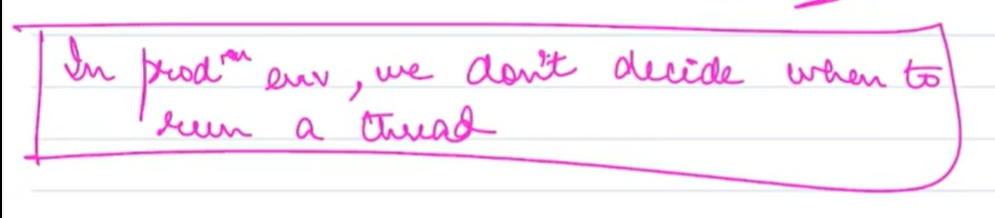 In prodⁿ env, we don't decide when to
run a thread